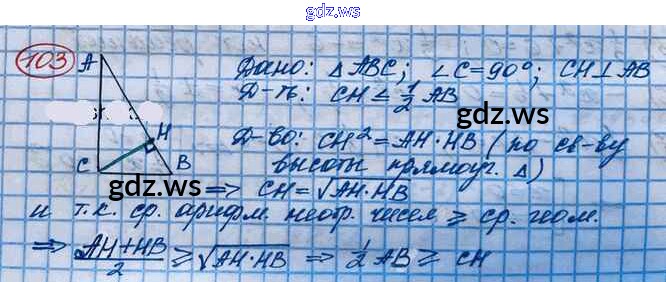 gdz.ws
103 A Дано: △ABC; ∠C=90°; CH⊥AB
Д-ть: CH ≤ 1/2 AB
gdz.ws
H Д-во: CH² = AH·HB (по св-ву
C B высоты прямоуг. △)
gdz.ws
⇒ CH = √AH·HB
и т.к. ср. арифм. неотр. чисел ≥ ср. геом.
⇒ AH+HB/2 ≥ √AH·HB ⇒ 1/2 AB ≥ CH
gdz.ws